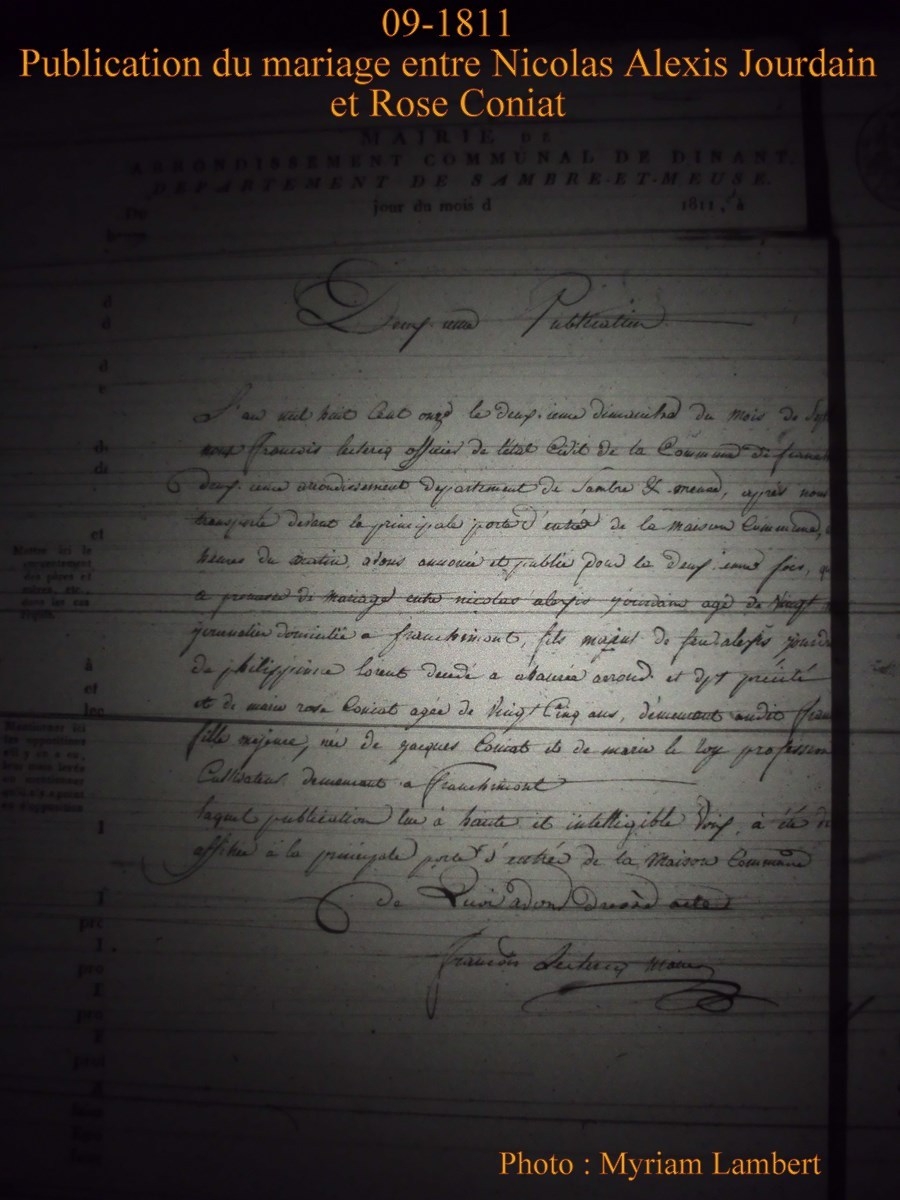 09-1811
Publication du mariage entre Nicolas Alexis Jourdain
et Rose Coniat
MAIRIE DE
ARRONDISSEMENT COMMUNAL DE DINANT,
DÉPARTEMENT DE SAMBRE-ET-MEUSE.
jour du mois d 1811, à
Deuxieme Publication
L'an mil huit Cent onze le deuxieme dimanche du mois de
nous francois leclercq officier de l'état Civil de la Commune de
deuxieme arrondissement departement de Sambre & meuse, après nous
transporté devant la principale porte d'entrée de la maison Commune,
heures du matin, avons annoncé et publié pour la deuxieme fois,
promesse de mariage entre nicolas alexis jourdain agé de Vingt
journalier domicilié a franchimont, fils majeur de feu alexis
de philippinne lorent decedé a arrond. et dpt précité
et de marie rose Coniat agée de Vingt Cinq ans, demeurant audit
fille majeure, née de jacques Coniat et de marie le roy profession
Cultivateur demeurant a franchimont
laquel publication lue à haute et intelligible Voix, à été
affichée à la principale porte d'entrée de la Maison Commune
de Quoi avons dressé acte
francois Leclercq maire
Mettre ici le
des pères et
mères, etc.,
dans les cas
Photo : Myriam Lambert